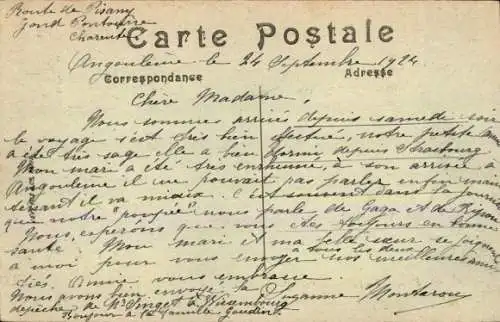 Route de Pisany
Gond Pontouvre
Charente
Carte Postale
Angoulème le 24 Septembre 1924
Correspondance Adresse
Chère Madame,
Nous sommes arrivés depuis samedi soir
le voyage s'est très bien effectué, notre petite
a été très sage elle a bien dormi depuis Strasbourg
Mon mari a été très enrhumé, à son arrivée à
Angoulème il ne pouvait pas parler enfin main-
tenant il va mieux. C'est souvent dans la journée
que notre "poupée" nous parle de Gaga et de
Nous espérons que vous êtes toujours en bonne
santé. Mon mari et ma belle sœur se joignent
à moi pour vous envoyer nos meilleures ami-
tiés. Aimée vous embrasse.
à tous les deux
Nous avons bien envoyé la Suzanne
dépêche de Mr à Wissembourg
Bonjour à la famille